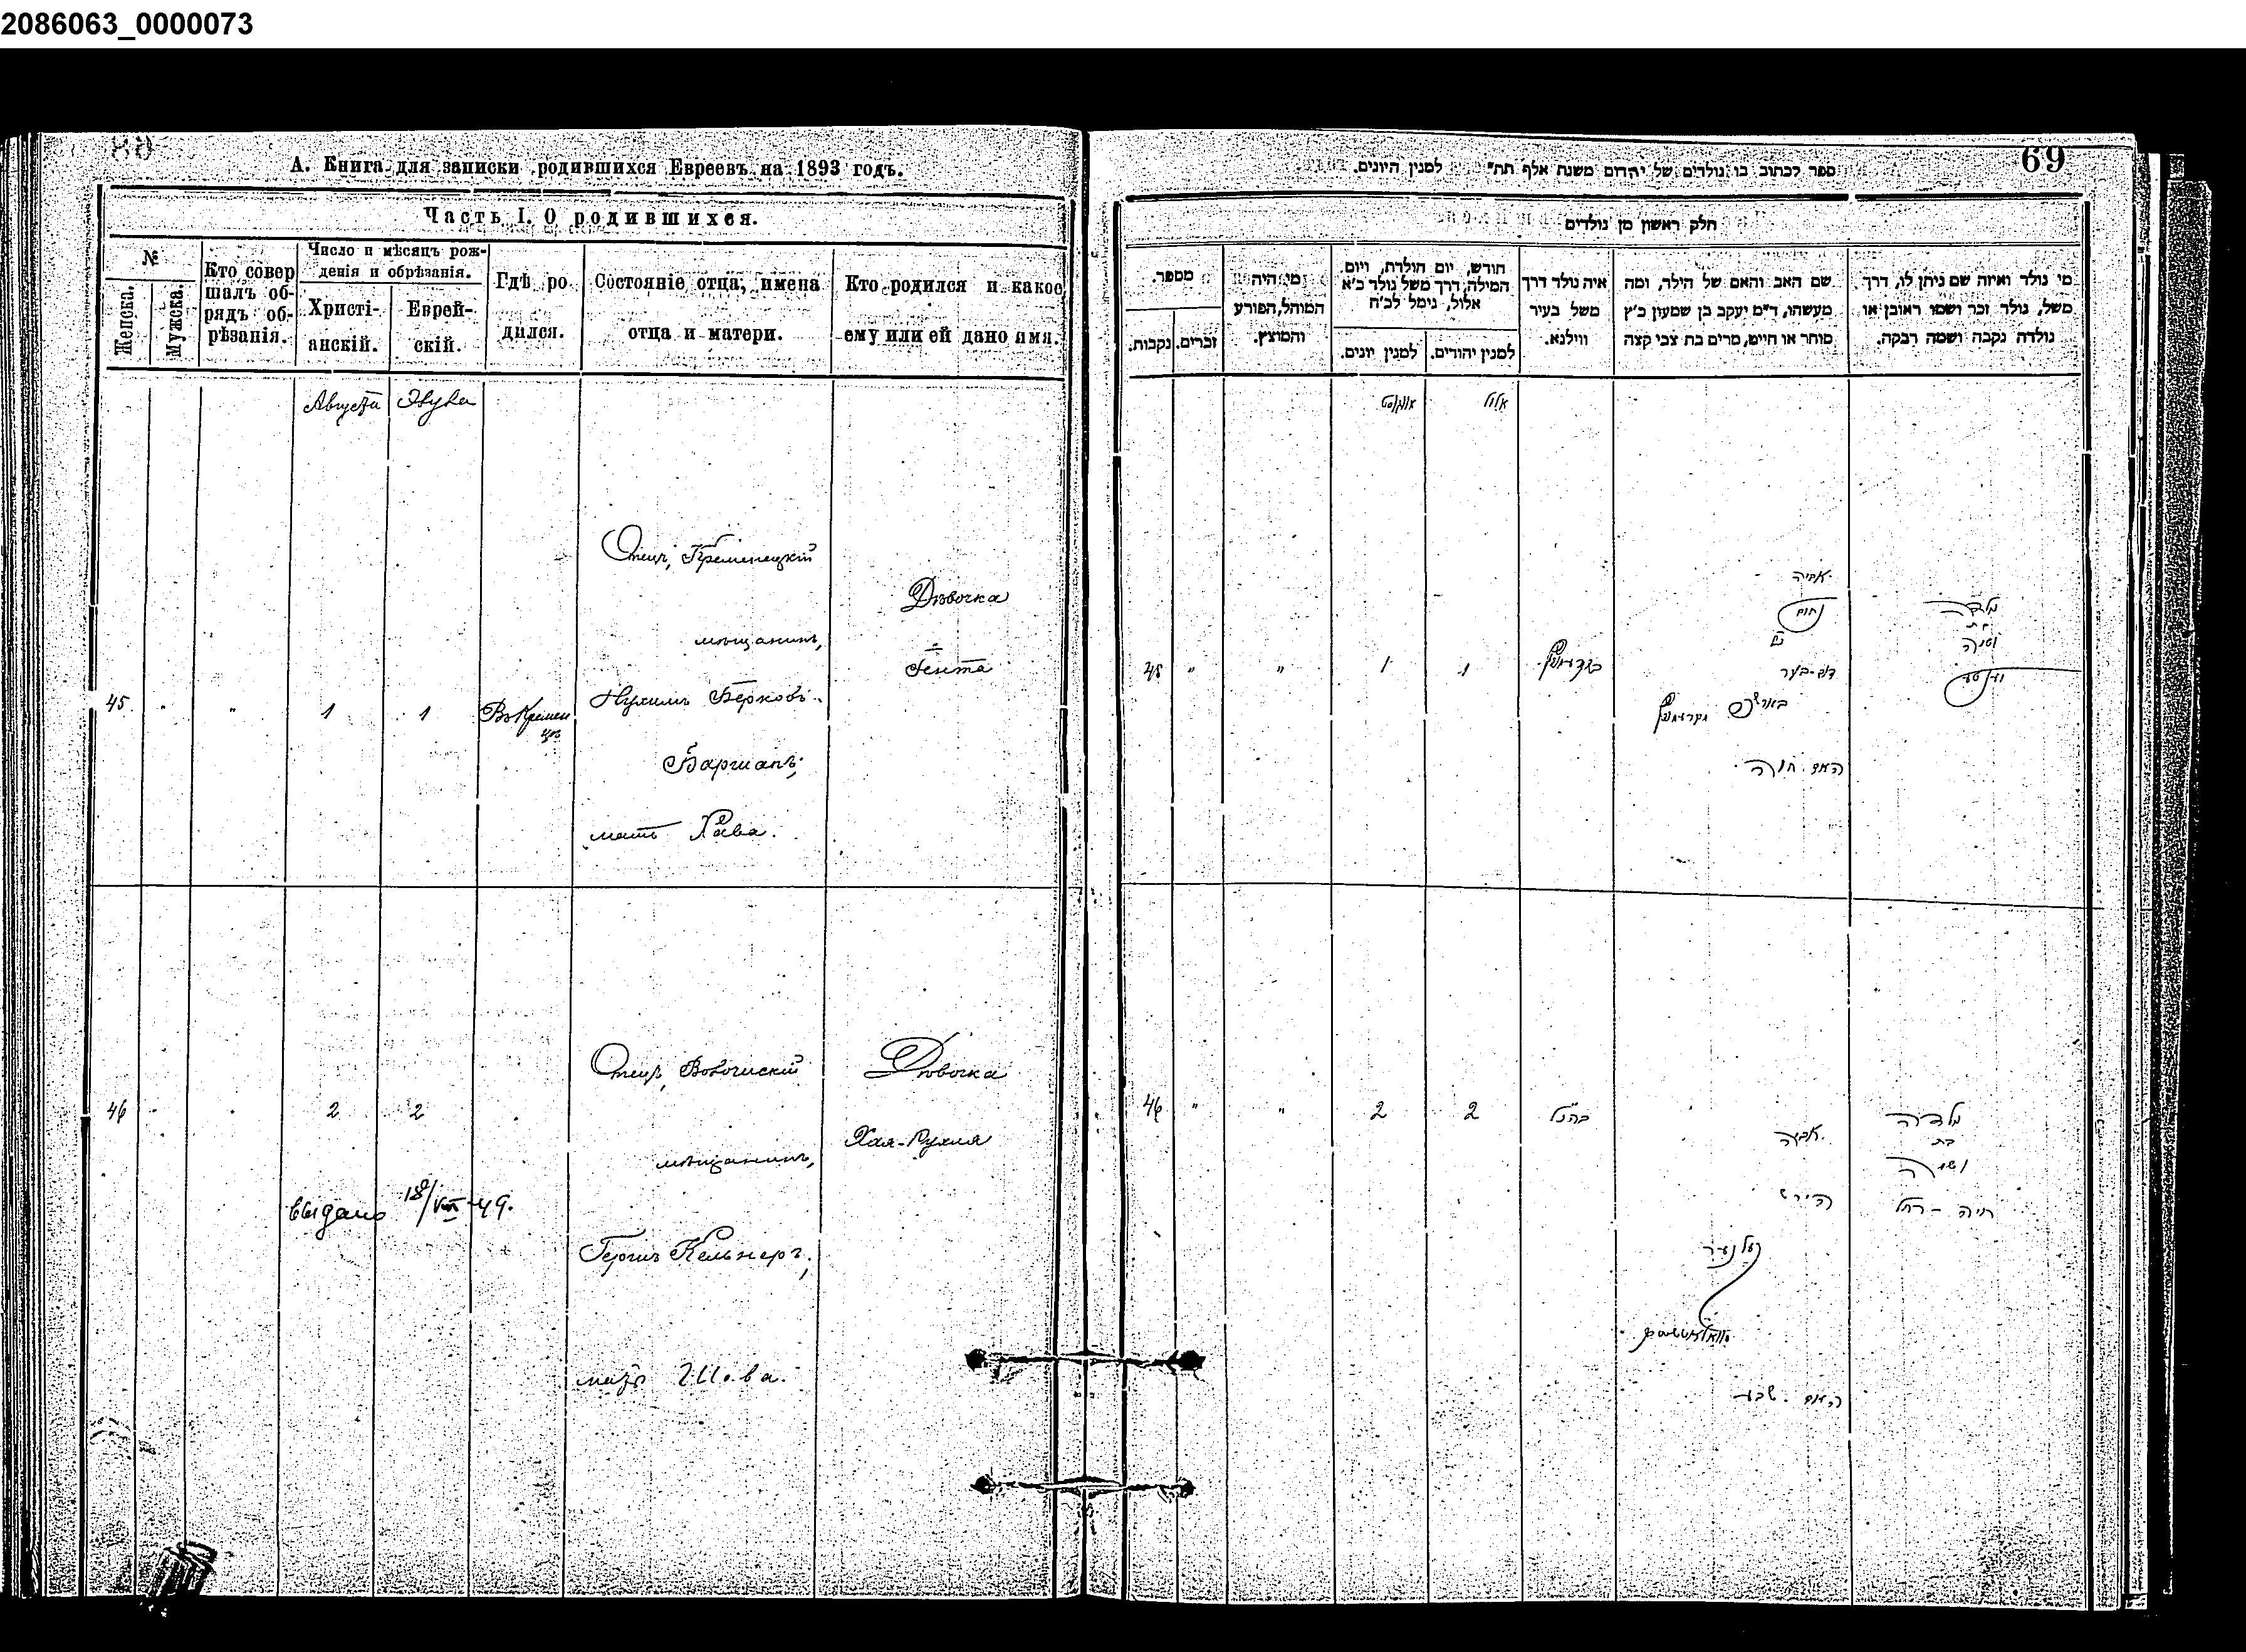 2086063_0000073
А. Книга для записки родившихся Евреевъ на 1893 годъ.
Часть I. О родившихся.
№
Женска.
Мужска.
Кто совер
шалъ об-
рядъ об-
рѣзанія.
Число и мѣсяцъ рож-
денія и обрѣзанія.
Христі-
анскій.
Еврей-
скій.
Гдѣ ро
дился.
Состояніе отца, имена
отца и матери.
Кто родился и какое
ему или ей дано имя.
Августа
Отецъ, Кременецкій
мѣщанинъ,
Нухимъ Берковъ
Баршапъ;
мать Хава.
Дѣвочка
Гента
45 " " 1 1 Въ Кремен
цѣ
46 " " 2 2 "
Отецъ, Волочискій
мѣщанинъ,
Гершъ Кельнеръ;
мать Шева.
Дѣвочка
Хая-Рухля
выдано 18/VIII-49.
69
ספר לכתוב בו נולדים של יהדום משנת אלף תת" למנין היונים.
חלק ראשון מן נולדים
מי נולד ואיזה שם ניתן לו, דרך
משל, נולד זכר ושמו ראובן או
נולדה נקבה ושמה רבקה.
שם האב והאם של הילד, ומה
מעשהו, ד"מ יעקב בן שמעון כ"ץ
סוחר או חייט, מרים בת צבי קצה
איה נולד דרך
משל בעיר
ווילנא.
חודש, יום הולדת, ויום
המילה, דרך משל נולד כ"א
אלול, נימל לכ"ח
למנין יהודים.
למנין יונים.
מי היה
המוהל, הפורע
והמוצץ.
מספר.
זכרים.
נקבות.
אלול
אויגוסט
45 " " 1 1
אביה
נחום
דוב-בער
האם חוה
46 " " 2 2 כהנ"ל
אביה
הירש
קעלנער
האם שבע
נולדה
בת
ושמה
חיה - רחל